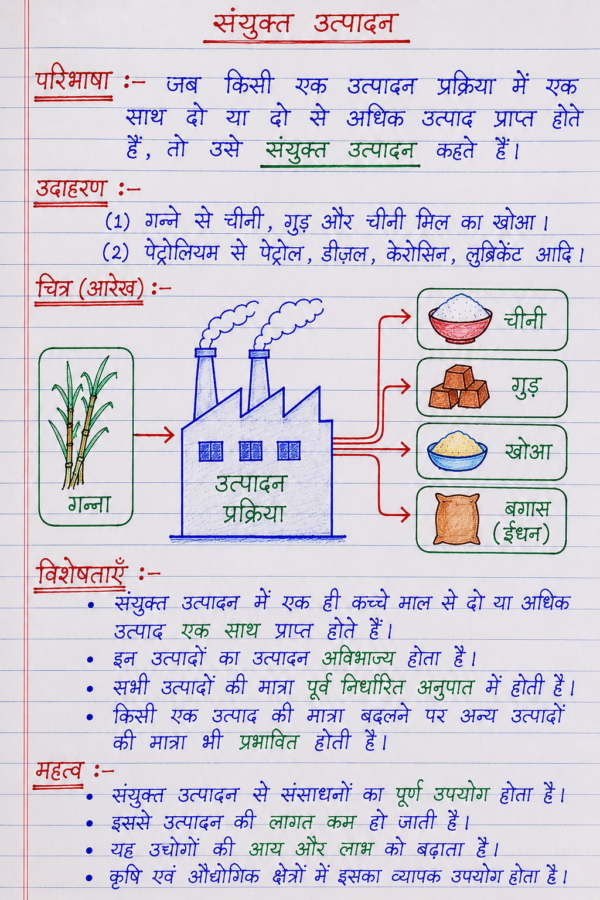 संयुक्त उत्पादन
परिभाषा :– जब किसी एक उत्पादन प्रक्रिया में एक
साथ दो या दो से अधिक उत्पाद प्राप्त होते
हैं, तो उसे संयुक्त उत्पादन कहते हैं।
उदाहरण :–
(1) गन्ने से चीनी, गुड़ और चीनी मिल का खोआ।
(2) पेट्रोलियम से पेट्रोल, डीज़ल, केरोसिन, लुब्रिकेंट आदि।
चित्र (आरेख) :–
गन्ना
उत्पादन
प्रक्रिया
चीनी
गुड़
खोआ
बगास
(ईंधन)
विशेषताएँ :–
• संयुक्त उत्पादन में एक ही कच्चे माल से दो या अधिक
उत्पाद एक साथ प्राप्त होते हैं।
• इन उत्पादों का उत्पादन अविभाज्य होता है।
• सभी उत्पादों की मात्रा पूर्व निर्धारित अनुपात में होती है।
• किसी एक उत्पाद की मात्रा बदलने पर अन्य उत्पादों
की मात्रा भी प्रभावित होती है।
महत्व :–
• संयुक्त उत्पादन से संसाधनों का पूर्ण उपयोग होता है।
• इससे उत्पादन की लागत कम हो जाती है।
• यह उद्योगों की आय और लाभ को बढ़ाता है।
• कृषि एवं औद्योगिक क्षेत्रों में इसका व्यापक उपयोग होता है।